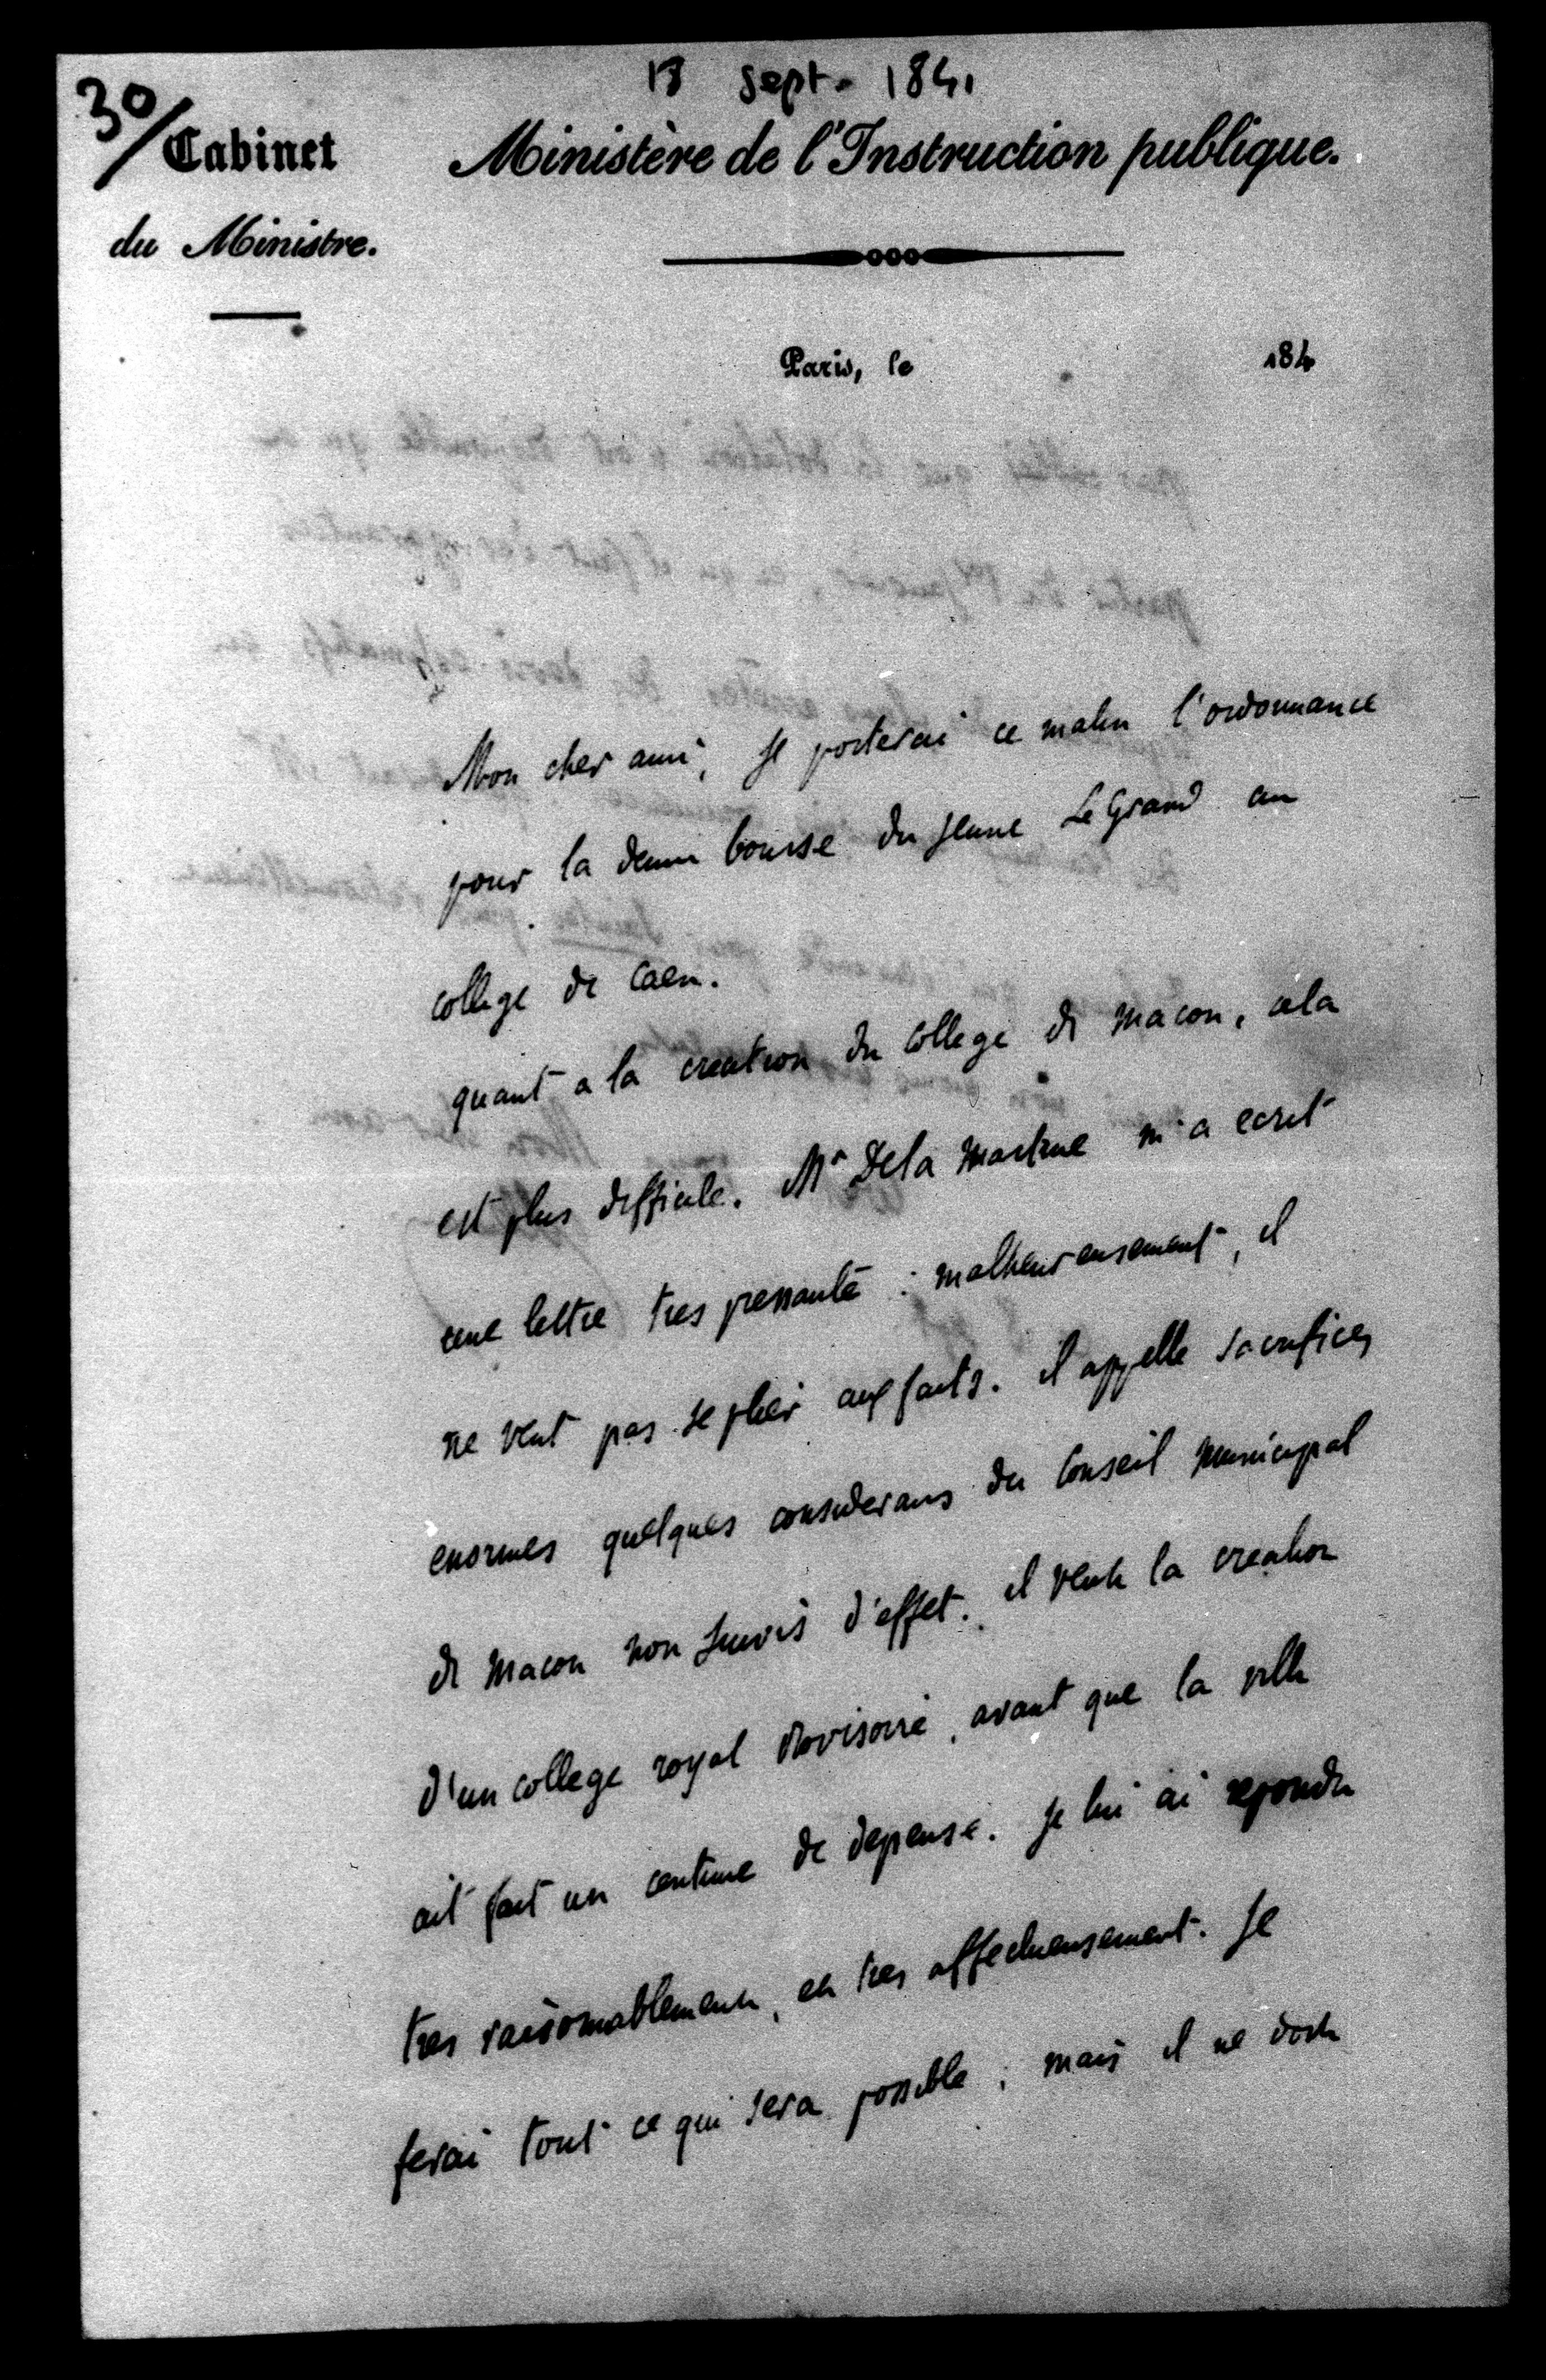 13 sept. 1841
30/
Cabinet
du Ministre.
Ministère de l'Instruction publique.
Paris, le 184
Mon cher ami, je porterai ce matin l'ordonnance
pour la demi bourse du jeune LeGrand au
college de Caen.
quant a la creation du college de macon, cela
est plus difficile. Mr De la martine m'a ecrit
une lettre tres pressante : malheureusement, il
ne veut pas se plier aux faits. il appelle sacrifices
enormes quelques considerans du Conseil municipal
de macon non suivis d'effet. il veut la creation
d'un college royal provisoire, avant que la ville
ait fait un centime de depense. je lui ai repondu
tres raisonnablement, et tres affectueusement. Je
ferai tout ce qui sera possible ; mais il ne doit